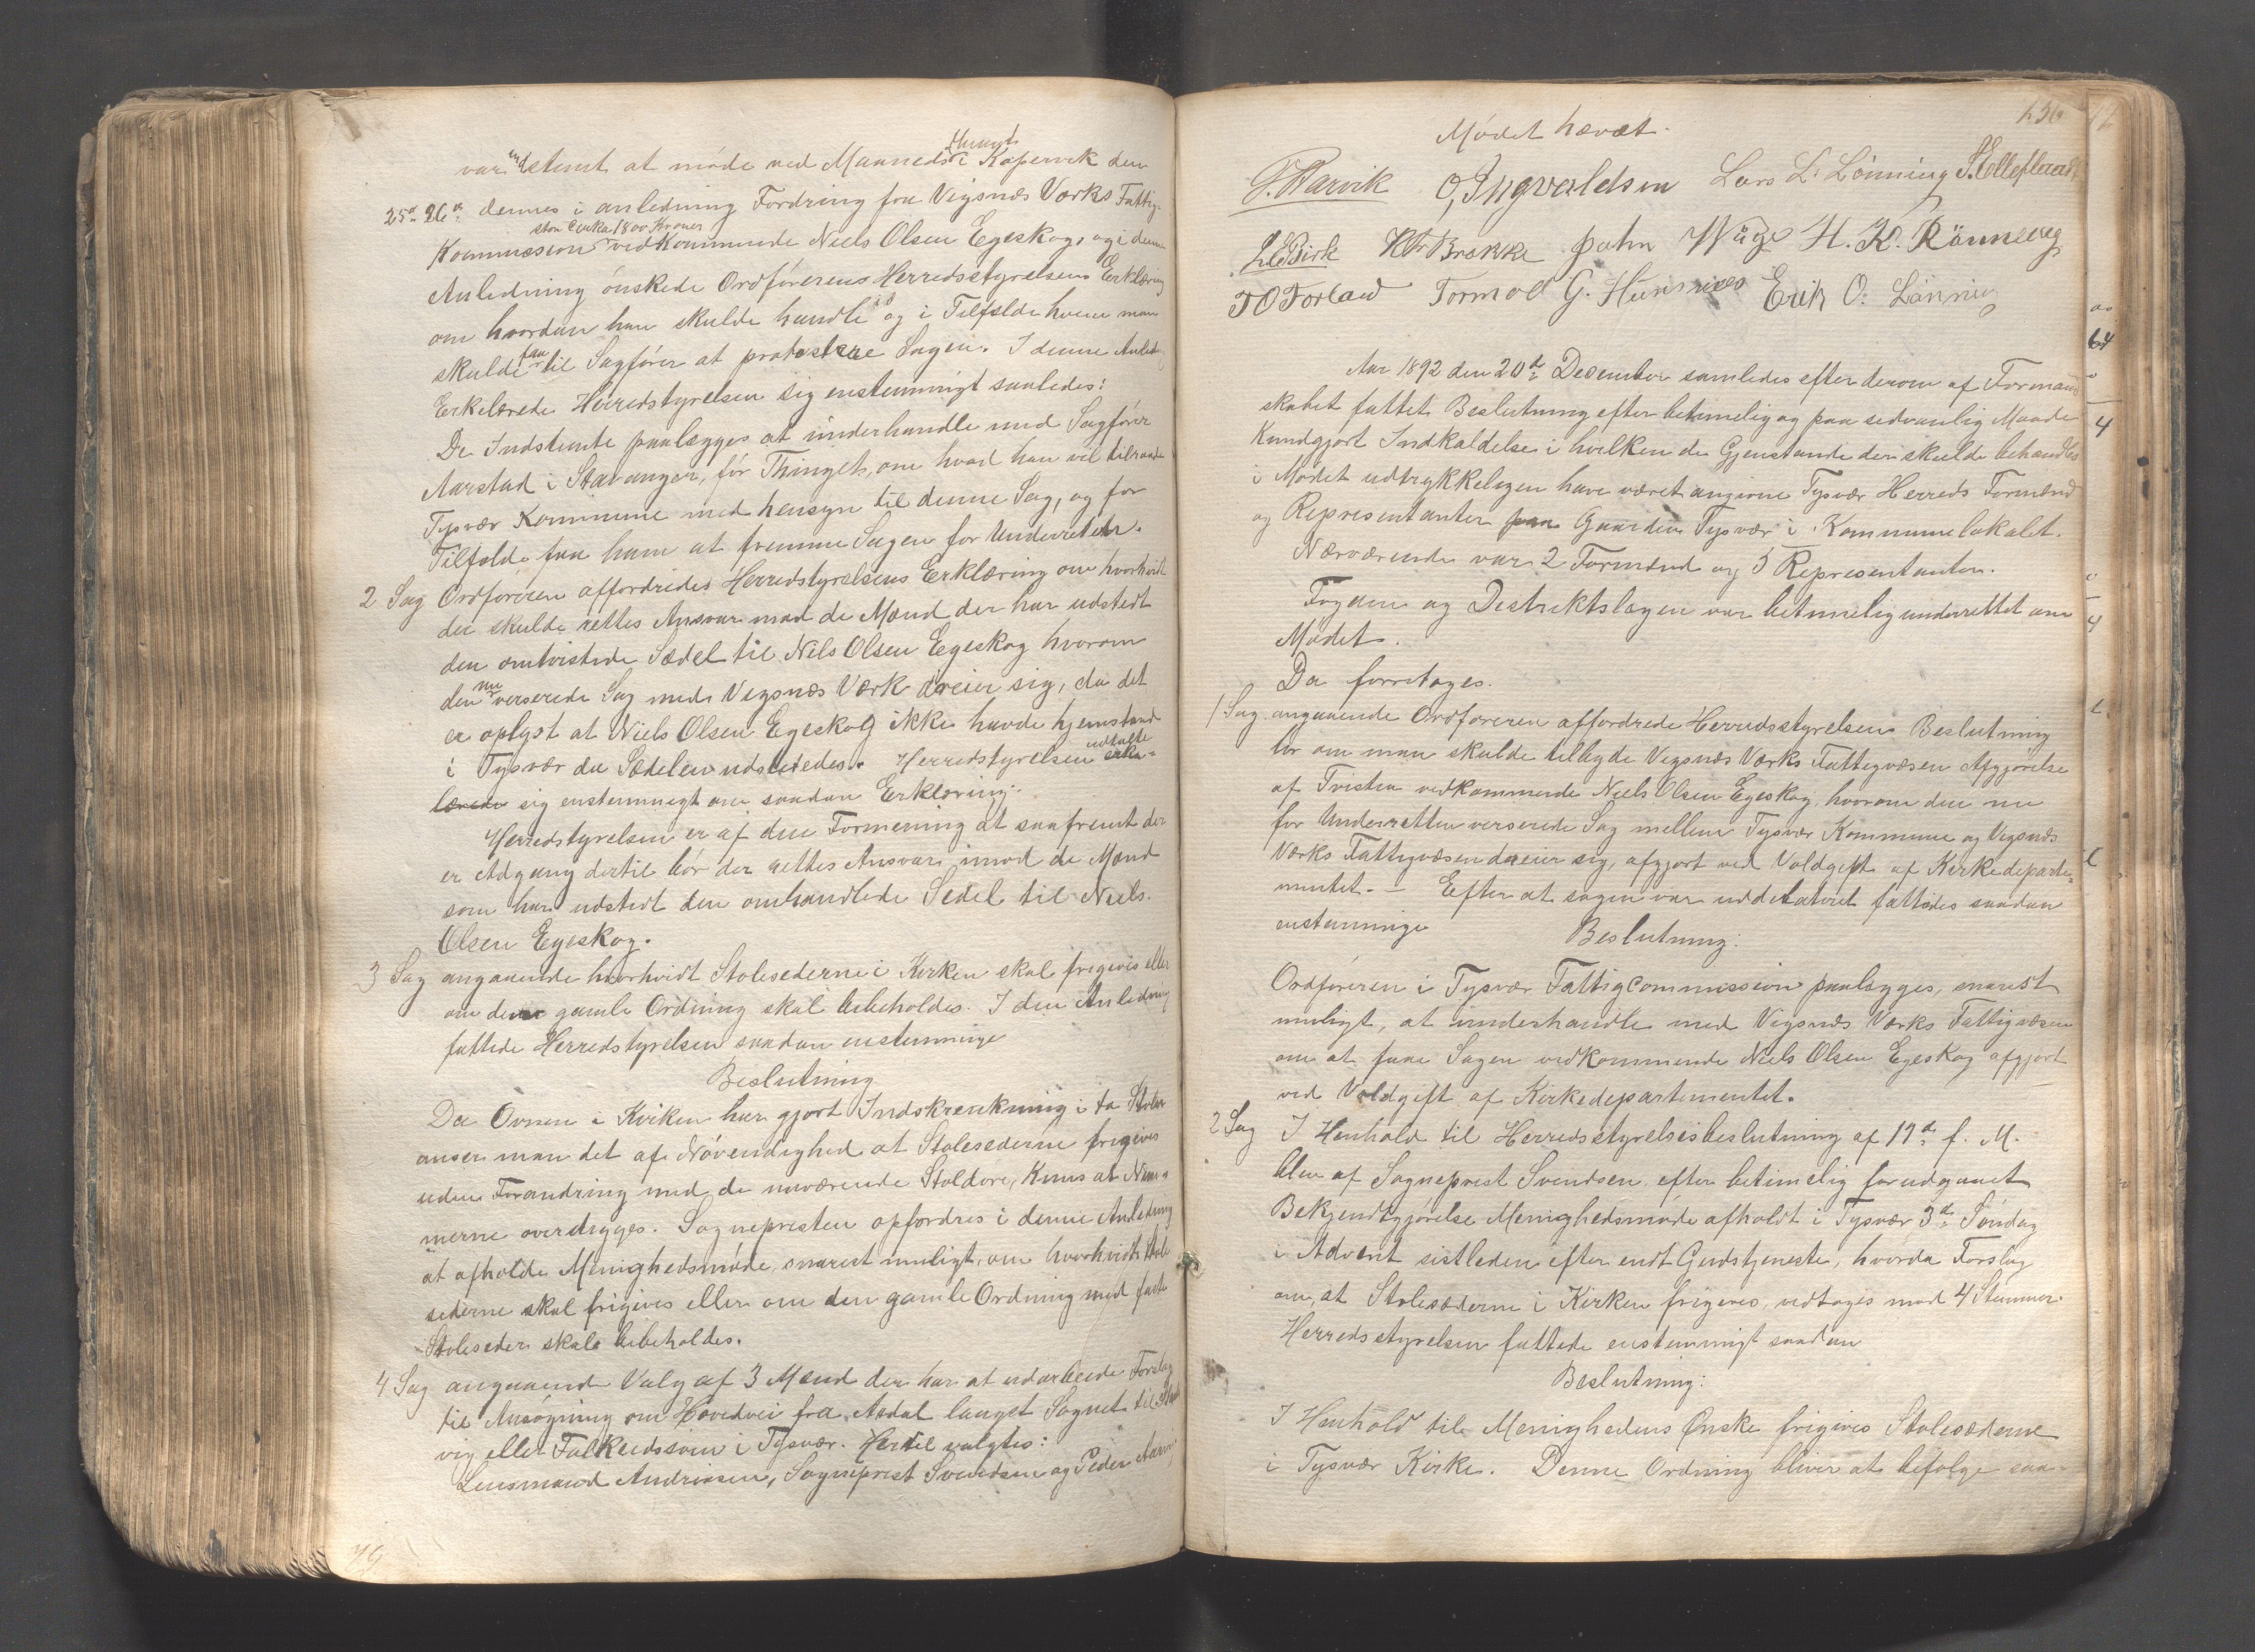 var indstemt at møde ved Maanedsthinget i Kopervik den
25de 26de dennes i anledning Fordring fra Vigsnæs Værks Fattig-
Kommission stor Cirka 1800 Kroner vedkommende Niels Olsen Egeskog, og i denne
Anledning ønskede Ordføreren Herredsstyrelsens Erklæring
om hvordan han skulde handle og i Tilfælde hvem man
skulde faa til Sagfører at protestere Sagen. I denne Anled-
Erkelærede Herredstyrelsen sig enstemmigt saaledes:
De Indstemte paalægges at underhandle med Sagfører
Aarstad i Stavanger, før Thinget, om hvad han vil tilraade
Tysvær Kommune med hensyn til denne Sag, og for
Tilfælde faa ham at fremme Sagen for Underretten.
2 Sag Ordføreren affordredes Herredstyrelsens Erklæring om hvorhvidt
der skulde rettes Ansvar mod de Mænd der har udstedt
den omtvistede Sædel til Nils Olsen Egeskog hvorom
den nu verserede Sag med Vigsnæs Værk dreier sig, da det
er oplyst at Niels Olsen Egeskog ikke havde hjemstand
i Tysvær da Sædelen udstededes. Herredstyrelsen udtalte erke-
lærede sig enstemmigt om saadan Erklæring:
Herredstyrelsen er af den Formening at saafremt der
er Adgang dertil bør der rettes Ansvar imod de Mænd
som har udstedt den omhandlede Sedel til Niels
Olsen Egeskog.
3 Sag angaaende hvorhvidt Stolesederne i Kirken skal frigives eller
om den gamle Ordning skal bibeholdes. I den Anledning
fattede Herredstyrelsen saadan enstemmige
Beslutning
Da Ovnen i Kirken har gjort Indskrenkning i to Stoler
anser man det af Nøvendighed at Stolesederne frigives
uden Forandring med de nuværende Stoldøre, Kuns at Num-
merne overstryges. Sognepresten opfordres i denne Anledning
at afholde Menighedsmøde, snarest muligt, om hvorhvidt Stole
sederne skal frigives eller om den gamle Ordning med faste
Stoleseder skal bibeholdes.
4 Sag angaaende Valg af 3 Mænd der har at udarbeide Forslag
til Ansøgning om Hovedvei fra Aadal langst Sognet til
vig eller Falkeidssøen i Tysvær. Hertil valgtes:
Lensmand Andriasen, Sogneprest Svendsen og Peder
Mødet hævet.
T. Warvik O, Ingvaldsen Lars L. Lønning S. Elleflaadt
L E Birk K Fr Brække John Waage H. K. Rønnevig
T O Førland Tormod G. Hinderager Erik O. Lønning
Aar 1892 den 20de Desember samledes efter derom af Formand
skabet fattet Beslutning efter betimelig og paa sedvanlig Maade
Kundgjort Indkaldelse i hvilken de Gjenstande der skulde behandles
i Mødet udtrykkeligen have været angivne Tysvær Herreds Formænd
og Representanter paa Gaarden Tysvær i Kommunelokalet.
Nærværende var 2 Formænd og 5 Representanter.
Fogden og Destriktslægen var betimelig underrettet om
Mødet.
Da forretoges.
1 Sag angaaende Ordføreren affordrede Herredsstyrelsens Beslutning
for om man skulde tilbyde Vigsnæs Værks Fattigvæsen Afgjørelse
af Tvisten vedkommende Niels Olsen Egeskog, hvorom den nu
for Underretten verserede Sag mellem Tysvær Kommune og Vigsnæs
Værks Fattigvæsen dreier sig, afgjort ved Voldgift af Kirkedeparte-
mentet. – Efter at sagen var uddebateret fattedes saadan
enstemmige Beslutning:
Ordføreren i Tysvær Fattigcommission paalægges, snarest
muligt, at underhandle med Vigsnæs Værks Fattigvæsen
om at faae Sagen vedkommende Niels Olsen Egeskog afgjort
ved Voldgift af Kirkedepartementet.
2 Sag I Henhold til Herredsstyrelsesbeslutning af 17de f. M.
blev af Sogneprest Svendsen efter betimelig forudgaaet
Bekjendtgjørelse Menighedsmøde afholdt i Tysvær 3de Søndag
i Advent sistleden efter endt Gudstjeneste, hvorda Forslag
om, at Stolesæderne i Kirken frigives, vedtoges mod 4 Stemmer.
Herredsstyrelsen fattede enstemmigt saadan
Beslutning:
I Henhold til Menighedens Ønske frigives Stolesæderne
i Tysvær Kirke. Denne Ordning bliver at befølge saa-